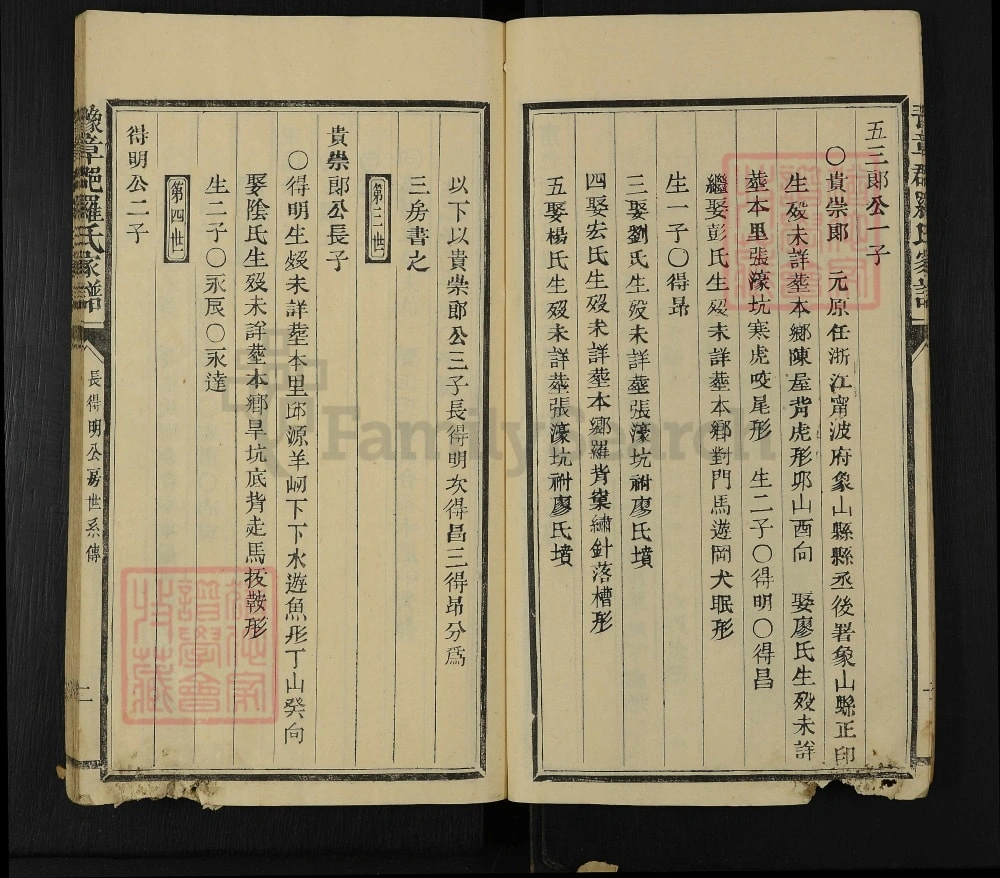 五三郎公一子
〇貴崇郎　元原任浙江甯波府象山縣縣丞後署象山縣正印
生殁未詳塟本鄉陳屋背虎形邜山酉向　娶廖氏生殁未詳
塟本里張濠坑寒虎咬尾形　生二子〇得明〇得昌
繼娶彭氏生殁未詳塟本鄉對門馬遊岡犬眠形
生一子〇得昂
三娶劉氏生殁未詳塟張濠坑祔廖氏墳
四娶宏氏生殁未詳塟本鄉羅背窠繡針落槽形
五娶楊氏生殁未詳塟張濠坑祔廖氏墳
以下以貴崇郎公三子長得明次得昌三得昂分爲
三房書之
第三世
貴崇郎公長子
〇得明生殁未詳塟本里邱源羊峒下下水遊魚形丁山癸向
娶陰氏生殁未詳塟本鄉旱坑底背走馬抜鞍形
生二子〇永辰〇永達
第四世
得明公二子
豫章郡羅氏家譜
長得明公房世系傳
二
FamilySearch